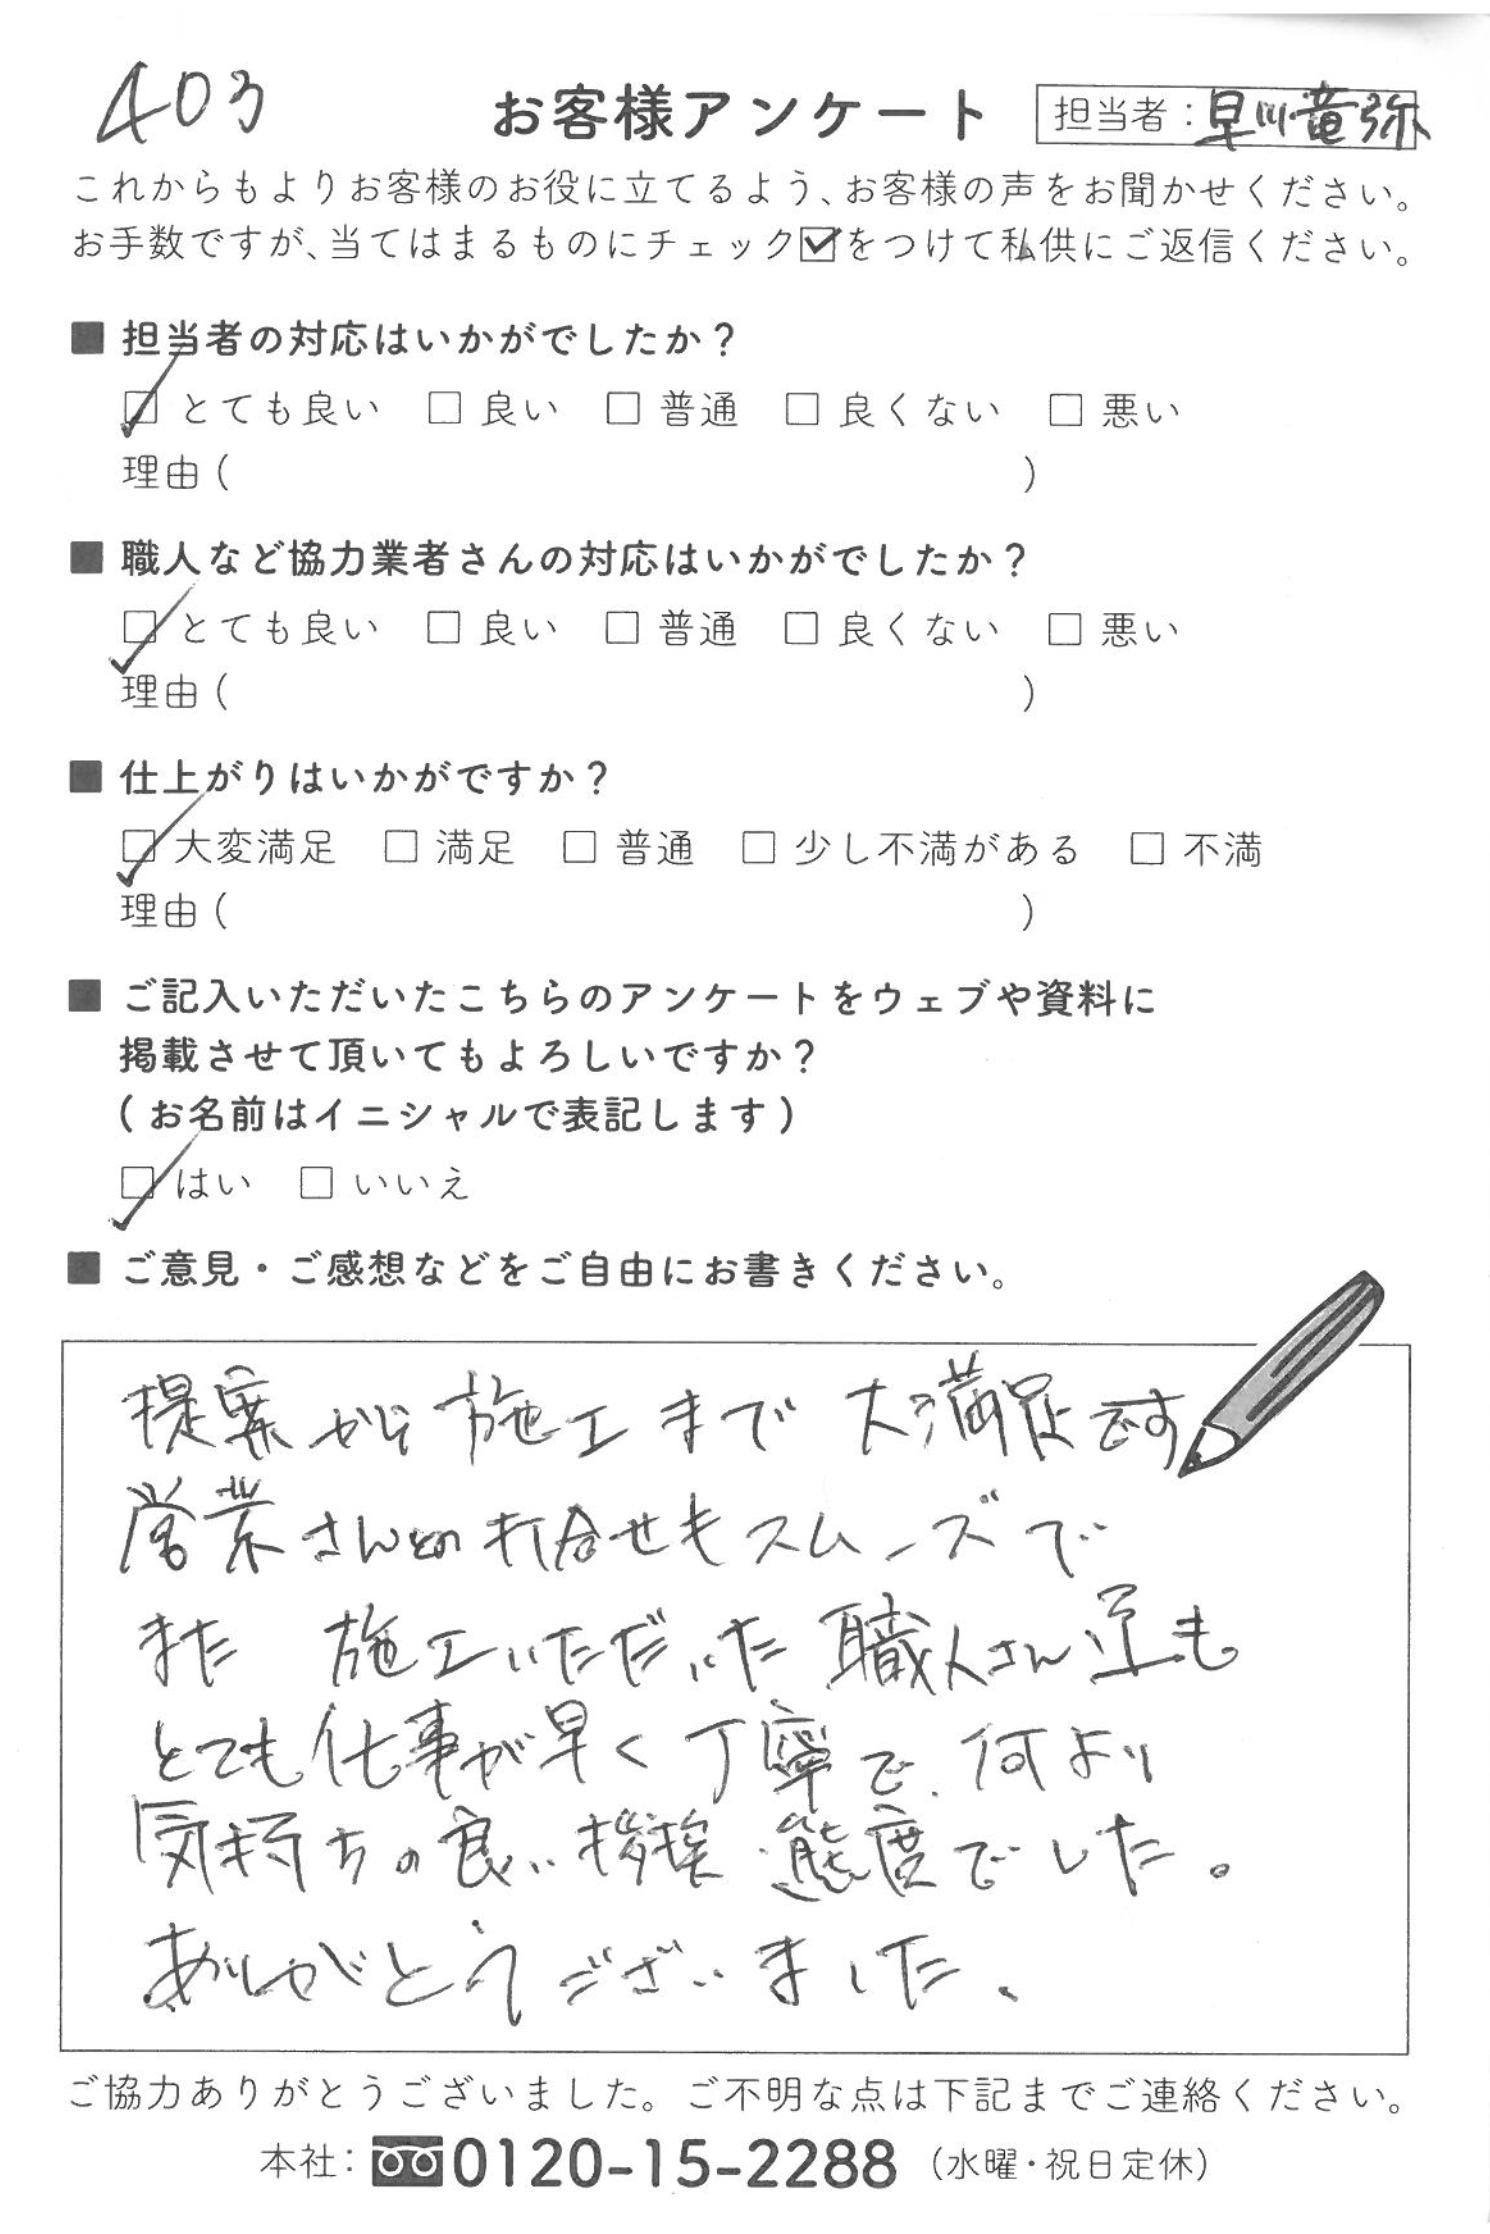 403
お客様アンケート 担当者：早川竜弥
これからもよりお客様のお役に立てるよう、お客様の声をお聞かせください。
お手数ですが、当てはまるものにチェック☑をつけて私供にご返信ください。
■ 担当者の対応はいかがでしたか？
☑ とても良い □ 良い □ 普通 □ 良くない □ 悪い
理由（ ）
■ 職人など協力業者さんの対応はいかがでしたか？
☑ とても良い □ 良い □ 普通 □ 良くない □ 悪い
理由（ ）
■ 仕上がりはいかがですか？
☑ 大変満足 □ 満足 □ 普通 □ 少し不満がある □ 不満
理由（ ）
■ ご記入いただいたこちらのアンケートをウェブや資料に
掲載させて頂いてもよろしいですか？
（お名前はイニシャルで表記します）
☑ はい □ いいえ
■ ご意見・ご感想などをご自由にお書きください。
提案から施工まで 大満足です
営業さんとの打合せもスムーズで
また 施工いただいた職人さん達も
とても仕事が早く丁寧で、何より
気持ちの良い挨拶・態度でした。
ありがとうございました、
ご協力ありがとうございました。ご不明な点は下記までご連絡ください。
本社：0120-15-2288（水曜・祝日定休）